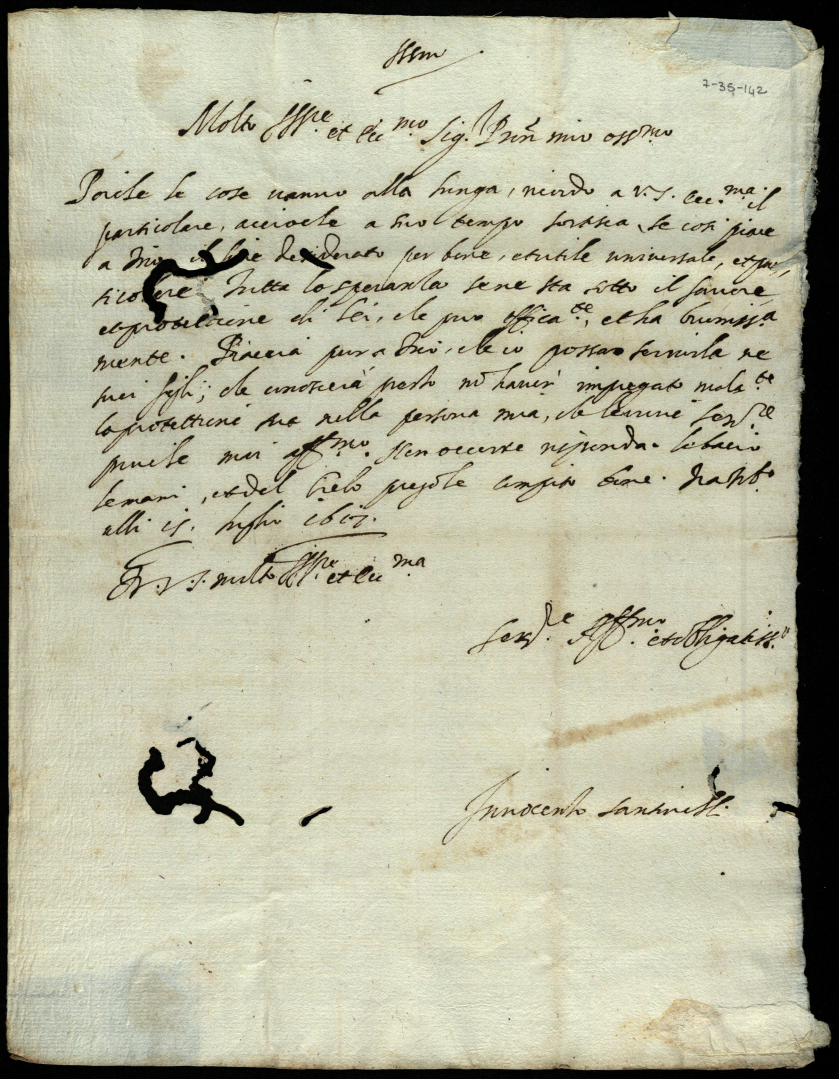 7-35-142
Molto Ill.re et Ecc.mo Sig. Pron mio oss.mo
Poiche le cose vanno alla lunga, ricordo a V. S. Ecc.ma il
particolare, accioche a suo tempo sortisca, se cosi piace
a Dio, il fine desiderato per bene, et utile universale, et par,
ticolare. Tutta la speranza sene sta sotto il favore,
et protettione di lei, che può efficate, et ha
mente. Piaccia pur a Dio, che io possa servirla ne
suoi figli; che conoscerà però nõ haver impiegato mala.te
la protettione sua nella persona mia, che le vivrò ser.re
mai aff.mo. Non occorre risponda. le bacio
le mani, et dal Cielo pregole compito bene.
alli 15. luglio 1617.
Di V. S. molto Ill.re et Ecc.ma
Ser.re Aff.mo et obligatiss.o
Innocentio Santinelli